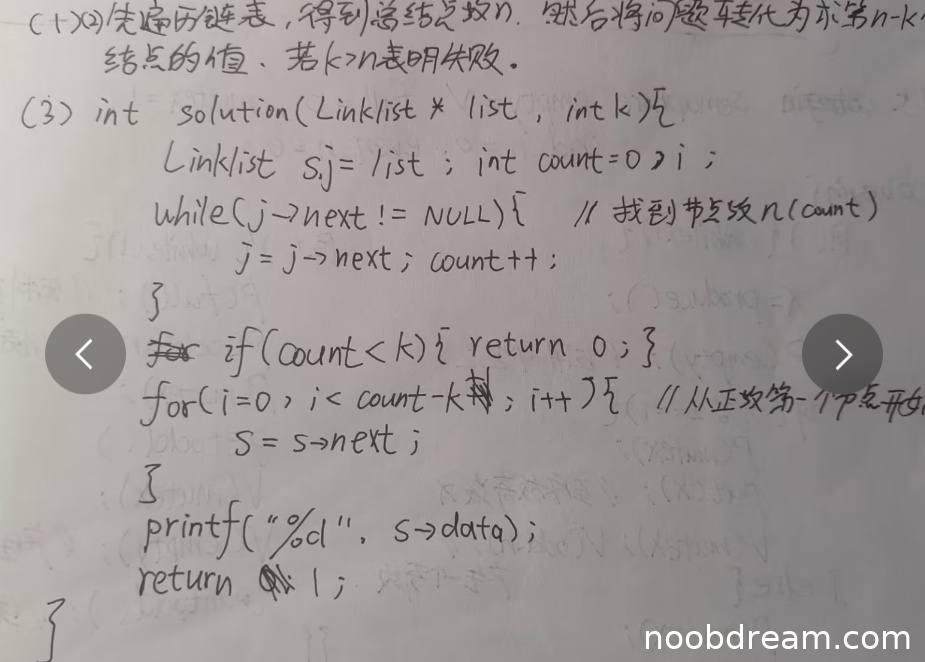 (1)(2)先遍历链表,得到总结点数n. 然后将问题转化为求第n-k
结点的值. 若k>n表明失败。
(3) int solution(Linklist * list, int k){
Linklist s,j= list ; int count=0,i ;
while(j->next != NULL){ // 找到节点数n(count)
j = j->next; count++;
}
if(count<k){ return 0;}
for(i=0, i< count-k ; i++){ // 从正数第一个节点开始
s = s->next ;
}
printf("%d". s->data);
return 1;
}
noobdream.com